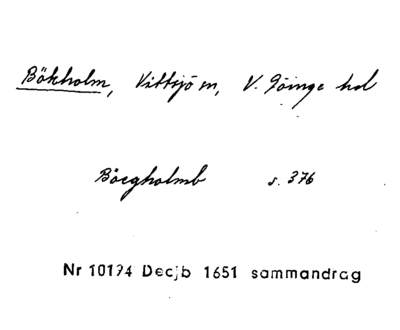 Bökholm, Vittsjö sn, V. Göinge hd
Böegholmb s. 376
Nr 10194 Decjb 1651 sammandrag